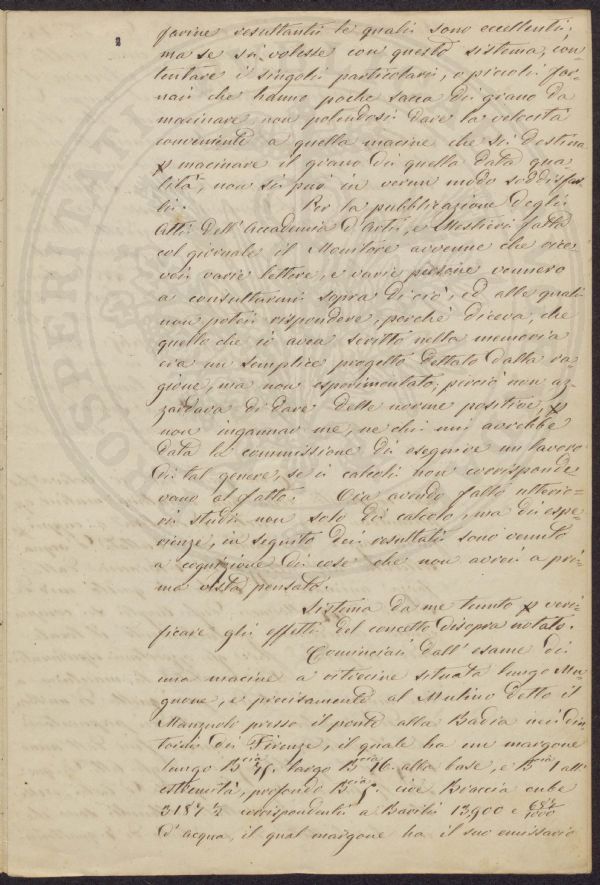 farine resultanti le quali sono eccellenti;
ma se si volesse con questo sistema, con-
tentare i singoli particolari, o piccoli for-
nai che hanno poche sacca di grano da
macinare non potendosi dare la velocità
conveniente a quella macine che si destina
p macinare il grano di quella data qua
lità, non si può in verun modo soddisfar
li. Per la pubblicazione degli
Atti dell'Accademia d'Arti, e Mestieri fatta
col giornale il Monitore avvenne che rice-
vei varie lettere, e varie persone vennero
a consultarmi sopra di ciò, ed alle quali
non potei rispondere, perché diceva, che
quello che io avea scritto nella memoria
era un semplice progetto dettato dalla ra
gione, ma non esperimentato; perciò non az-
zardava di dare delle norme positive, p
non ingannar me, ne chi mi avrebbe
data la commissione di eseguire un lavoro
di tal genere, se i calcoli non corrisponde
vano al fatto. Ora avendo fatto ulterio-
ri studi non solo di calcolo, ma di espe-
rienze, in seguito dei resultati sono venuto
a cognizione di cose che non avrei a pri-
ma vista pensato.
Sistema da me tenuto p veri-
ficare gli effetti del concetto disopra notato.
Cominciai dall'esame di
una macine a ritrecine situata lungo Mu-
gnone, e precisamente al Mulino detto il
Manzuoli presso il ponte alla Badia nei din-
torni di Firenze, il quale ha un margone
lungo B.cia largo B.cia 16. alla base, e B.cia 1 all'
estremità, profondo B.cia cioè Braccia cube
3187 ½ corrispondenti a Barili 13,900 e
d'acqua, il qual margone ha il suo emissario